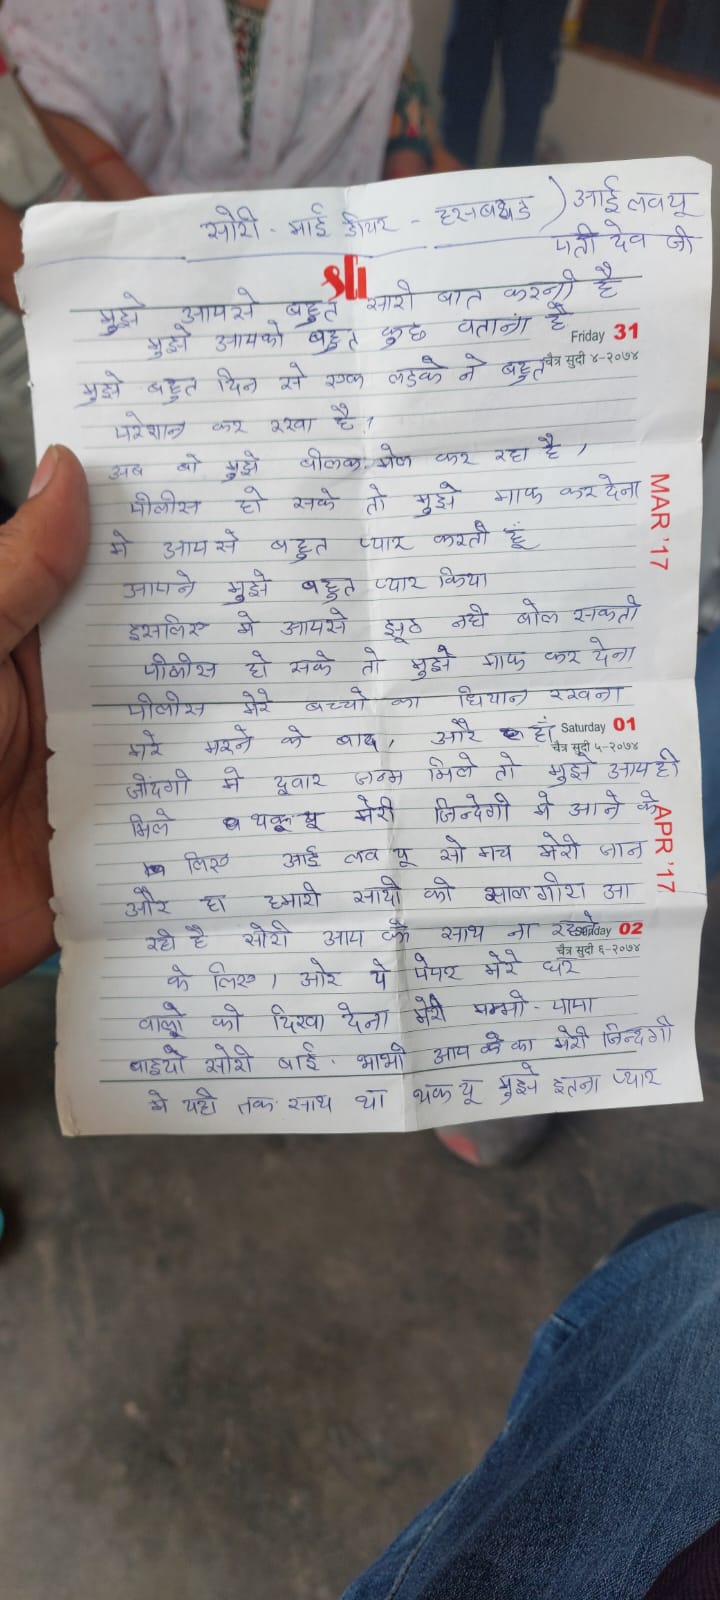 सोरी - माई डीयर - हसबण्डे ) आई लव यू
पती देव जी
sti
मुझे आपसे बहुत सारी बात करनी है
मुझे आपको बहुत कुछ बताना है
Friday 31
चैत्र सुदी ४-२०७४
मुझे बहुत दिन से एक लडके ने बहुत
परेशान कर रखा है,
अब वो मुझे बीलक मेल कर रहा है,
MAR '17
पीलीस हो सके तो मुझे माफ कर देना
मे आपसे बहुत प्यार करती हूँ
आपने मुझे बहुत प्यार किया
इसलिए मे आपसे झूठ नही बोल सकती
पीलीस हो सके तो मुझे माफ कर देना
पीलीस मेरे बच्चो का धियान रखना
मरे मरने के बाद, और हाँ
Saturday 01
चैत्र सुदी ५-२०७४
जीदगी मे दूवार जन्म मिले तो मुझे आप ही
मिले थकू यू मेरी जिन्देगी मे आने के
APR '17
लिए आई लव यू सो मच मेरी जान
और हा हमारी सादी की साल गीरा आ
रही है सोरी आप के साथ ना रहने
Sunday 02
चैत्र सुदी ६-२०७४
के लिए, ओर ये पेपर मेरे घर
वालो को दिखा देना मेरी मम्मी - पापा
सोरी बाई - भाभी आप के का मेरी जिन्दगी
मे यही तक साथ था थक यू मुझे इतना प्यार